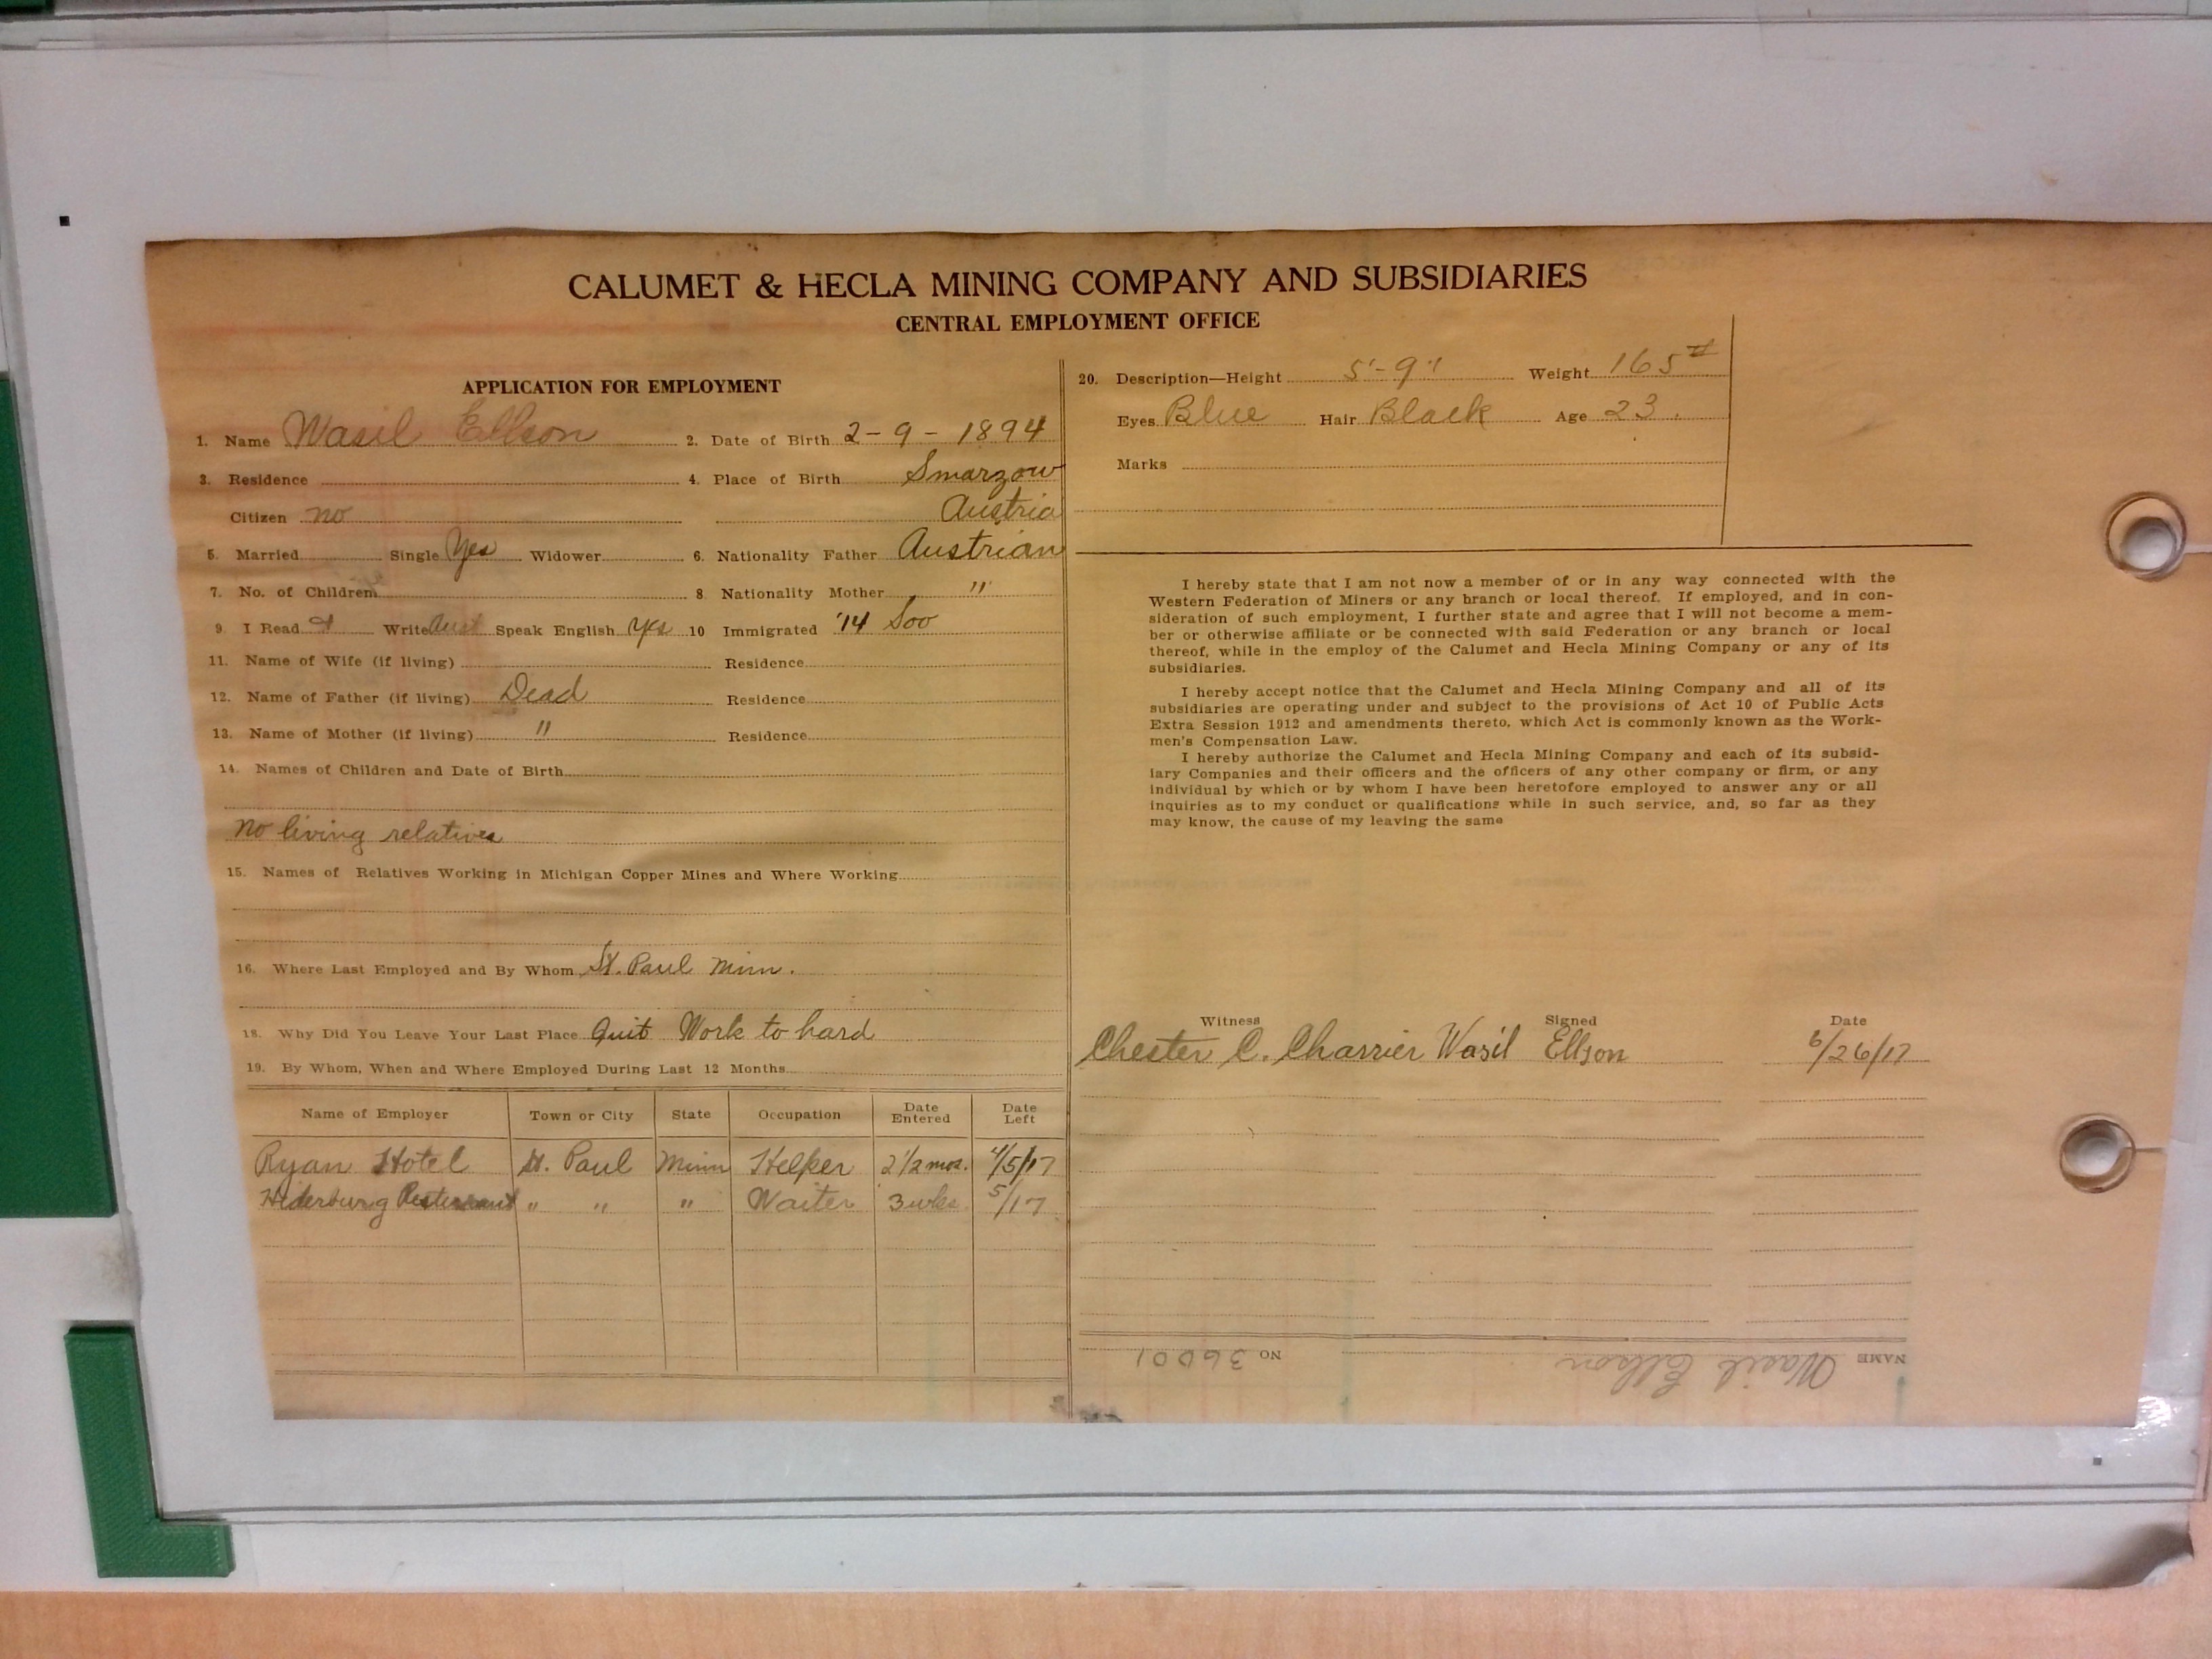 CALUMET & HECLA MINING COMPANY AND SUBSIDIARIES
CENTRAL EMPLOYMENT OFFICE
APPLICATION FOR EMPLOYMENT
1. Name Wasil Ellson 2. Date of Birth 2-9-1894
3. Residence 4. Place of Birth Smarzow
Citizen no Austria
5. Married Single Yes Widower 6. Nationality Father Austrian
7. No. of Children 8 Nationality Mother "
9. I Read & Write Aust Speak English Yes 10 Immigrated '14 Soo
11. Name of Wife (if living) Residence
12. Name of Father (if living) Dead Residence
13. Name of Mother (if living) " Residence
14. Names of Children and Date of Birth
No living relatives
15. Names of Relatives Working in Michigan Copper Mines and Where Working
16. Where Last Employed and By Whom St. Paul Minn.
18. Why Did You Leave Your Last Place Quit Work to hard
19. By Whom, When and Where Employed During Last 12 Months
Name of Employer Town or City State Occupation Date Entered Date Left
Ryan Hotel St. Paul Minn Helper 2 1/2 mos. 4/5/17
Restaurant " " " Waiter 3 wks 5/17
20. Description—Height 5'-9" Weight 165#
Eyes Blue Hair Black Age 23.
Marks
I hereby state that I am not now a member of or in any way connected with the
Western Federation of Miners or any branch or local thereof. If employed, and in con-
sideration of such employment, I further state and agree that I will not become a mem-
ber or otherwise affiliate or be connected with said Federation or any branch or local
thereof, while in the employ of the Calumet and Hecla Mining Company or any of its
subsidiaries.
I hereby accept notice that the Calumet and Hecla Mining Company and all of its
subsidiaries are operating under and subject to the provisions of Act 10 of Public Acts
Extra Session 1912 and amendments thereto, which Act is commonly known as the Work-
men's Compensation Law.
I hereby authorize the Calumet and Hecla Mining Company and each of its subsid-
iary Companies and their officers and the officers of any other company or firm, or any
individual by which or by whom I have been heretofore employed to answer any or all
inquiries as to my conduct or qualifications while in such service, and, so far as they
may know, the cause of my leaving the same
Witness Signed Date
Chester C. Charrier Wasil Ellson 6/26/17
NAME Wasil Ellson NO 36001